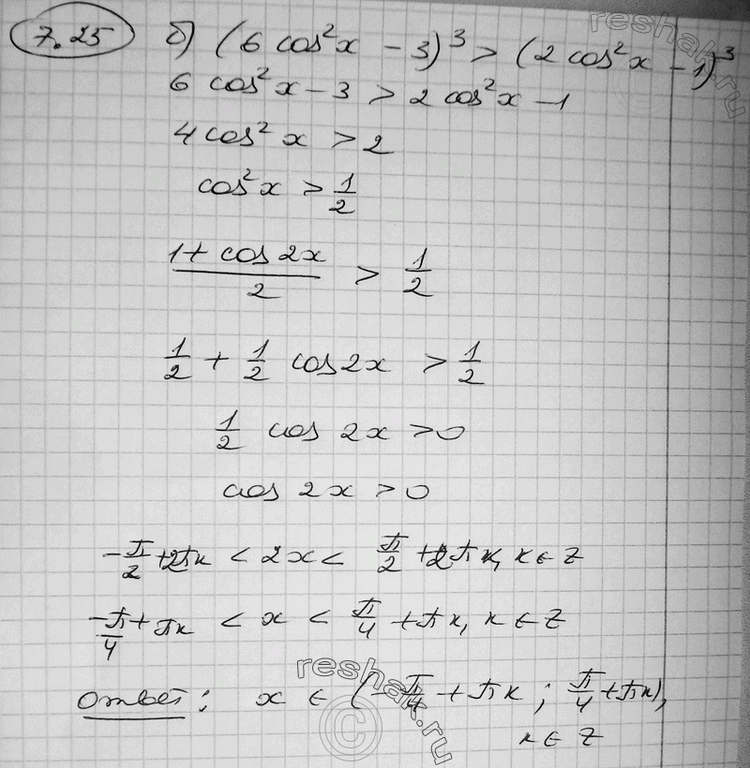 7.25 б) (6 cos²x - 3)³ > (2 cos²x - 1)³
6 cos²x - 3 > 2 cos²x - 1
4 cos²x > 2
cos²x > 1/2
(1 + cos 2x)/2 > 1/2
1/2 + 1/2 cos 2x > 1/2
1/2 cos 2x > 0
cos 2x > 0
-π/2 + 2πk < 2x < π/2 + 2πk, k ∈ Z
-π/4 + πk < x < π/4 + πk, k ∈ Z
Ответ: x ∈ (-π/4 + πk ; π/4 + πk),
k ∈ Z
reshak.ru
reshak.ru
©